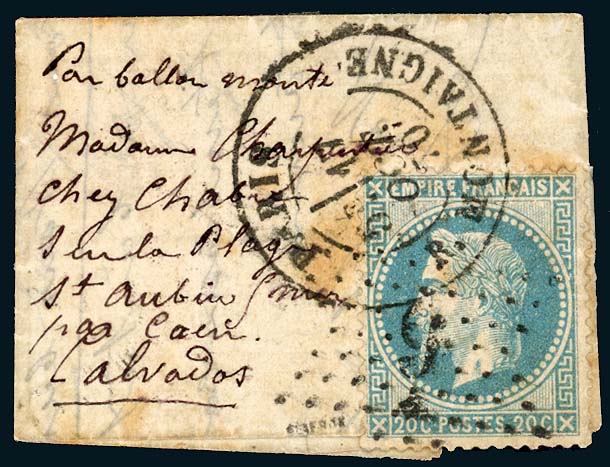 Par ballon monté
Madame Charpentier
chez Chabre
sur la Plage
St Aubin s/mer
par Caen.
Calvados
PARIS MONTAIGNE
OCT
70
EMPIRE FRANCAIS
20C POSTES 20C